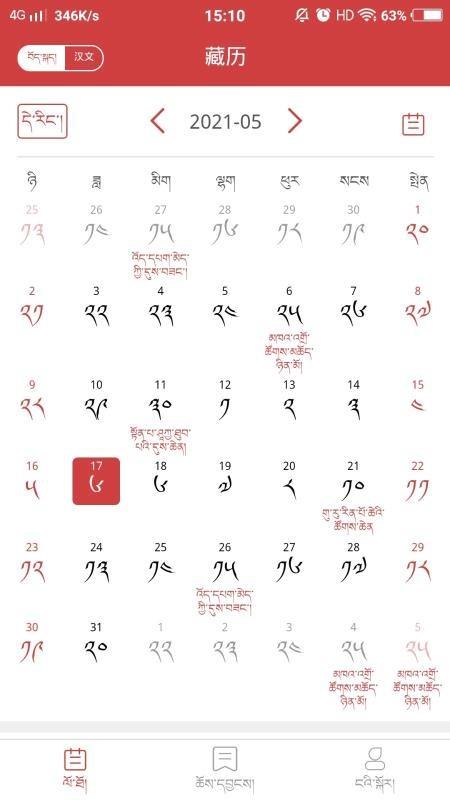 4G 346K/s 15:10 HD 63%
བོད་སྐད། 汉文 藏历
དེ་རིང་། 2021-05
ཉི ཟླ མིག ལྷག ཕུར སངས སྤེན
25 26 27 28 29 30 1
༡༣ ༡༤ ༡༥ ༡༦ ༡༨ ༡༩ ༢༠
འོད་དཔག་མེད་
ཀྱི་དུས་བཟང་།
2 3 4 5 6 7 8
༢༡ ༢༢ ༢༣ ༢༤ ༢༥ ༢༦ ༢༧
མཁའ་འགྲོ་
ཚོགས་མཆོད་
ཉིན་མོ།
9 10 11 12 13 14 15
༢༨ ༢༩ ༣༠ ༡ ༢ ༣ ༤
སྟོན་པ་ཤཱཀྱ་ཐུབ་
པའི་དུས་ཆེན།
16 17 18 19 20 21 22
༥ ༦ ༦ ༧ ༨ ༡༠ ༡༡
གུ་རུ་རིན་པོ་ཆེའི་
ཚོགས་ཆེན
23 24 25 26 27 28 29
༡༢ ༡༣ ༡༤ ༡༥ ༡༦ ༡༧ ༡༨
འོད་དཔག་མེད་
ཀྱི་དུས་བཟང་།
30 31 1 2 3 4 5
༡༩ ༢༠ ༢༢ ༢༣ ༢༤ ༢༥ ༢༥
མཁའ་འགྲོ་ མཁའ་འགྲོ་
ཚོགས་མཆོད་ ཚོགས་མཆོད་
ཉིན་མོ། ཉིན་མོ།
ལོ་ཐོ། ཆོས་དབྱངས། ངའི་སྐོར།